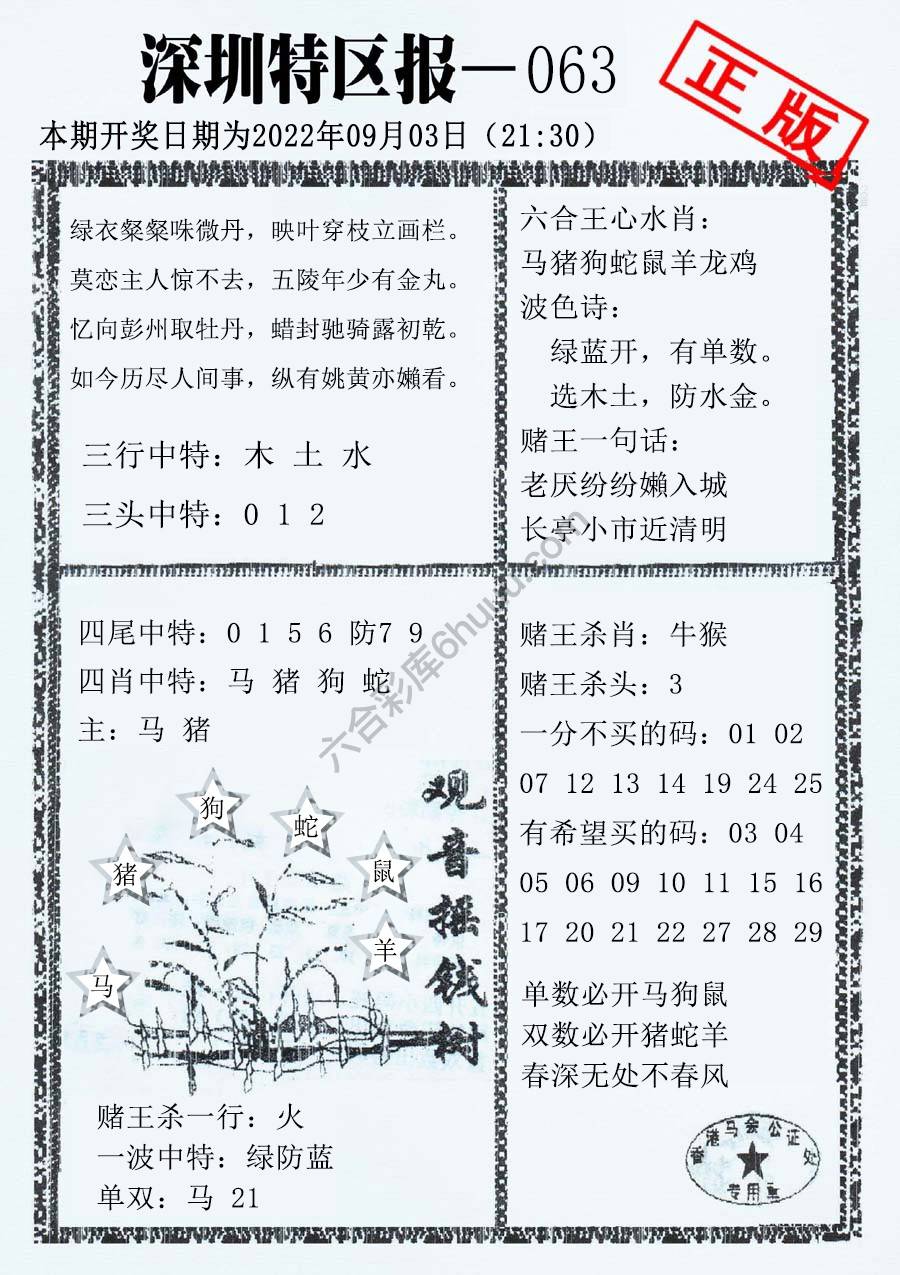 深圳特区报—063
正版
本期开奖日期为2022年09月03日（21:30）
绿衣粲粲咮微丹，映叶穿枝立画栏。
莫恋主人惊不去，五陵年少有金丸。
忆向彭州取牡丹，蜡封驰骑露初乾。
如今历尽人间事，纵有姚黄亦嬾看。
三行中特：木 土 水
三头中特：0 1 2
六合王心水肖：
马猪狗蛇鼠羊龙鸡
波色诗：
绿蓝开，有单数。
选木土，防水金。
赌王一句话：
老厌纷纷嬾入城
长亭小市近清明
四尾中特：0 1 5 6 防7 9
四肖中特：马 猪 狗 蛇
主：马 猪
狗
蛇
猪
鼠
羊
马
观音摇钱树
赌王杀一行：火
一波中特：绿防蓝
单双：马 21
赌王杀肖：牛猴
赌王杀头：3
一分不买的码：01 02
07 12 13 14 19 24 25
有希望买的码：03 04
05 06 09 10 11 15 16
17 20 21 22 27 28 29
单数必开马狗鼠
双数必开猪蛇羊
春深无处不春风
香港马会公证处
专用章
六合彩库6huuu.com